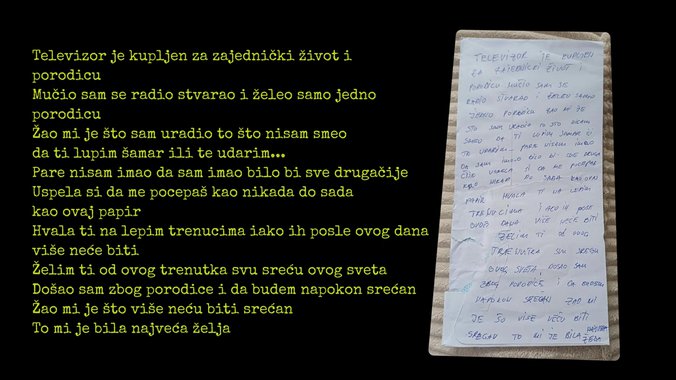 Televizor je kupljen za zajednički život i
porodicu
Mučio sam se radio stvarao i želeo samo jedno
porodicu
Žao mi je što sam uradio to što nisam smeo
da ti lupim šamar ili te udarim...
Pare nisam imao da sam imao bilo bi sve drugačije
Uspela si da me pocepaš kao nikada do sada
kao ovaj papir
Hvala ti na lepim trenucima iako ih posle ovog dana
više neće biti
Želim ti od ovog trenutka svu sreću ovog sveta
Došao sam zbog porodice i da budem napokon srećan
Žao mi je što više neću biti srećan
To mi je bila najveća želja
TELEVIZOR JE KUPLJEN
ZA ZAJEDNIČKI ŽIVOT I
PORODICU MUČIO SAM SE
RADIO STVARAO I ŽELEO SAMO
JEDNO PORODICU ŽAO MI JE
ŠTO SAM URADIO TO ŠTO NISAM
SMEO DA TI LUPIM ŠAMAR ILI
TE UDARIM... PARE NISAM IMAO
DA SAM IMAO BILO BI SVE DRUGA
ČIJE USPELA SI DA ME POCEPAŠ
KAO NIKAD DO SADA KAO OVAJ
PAPIR HVALA TI NA LEPIM
TRENUCIMA I AKO IH POSLE
OVOG DANA VIŠE NEĆE BITI
ŽELIM TI OD OVOG
TRENUTKA SVU SREĆU
OVOG SVETA, DOŠAO SAM
ZBOG PORODICE I DA BUDEM
NAPOKON SREĆAN ŽAO MI
JE ŠO VIŠE NEĆU BITI
SREĆAN TO MI JE BILA NAJVEĆA
ŽELJA